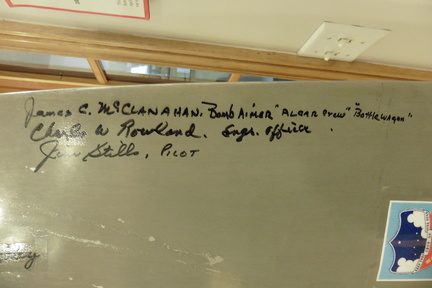 James C. McClanahan. Bomb Aimer "Algar Crew" "Battlewagon"
Charles W Rowland. Engr. Officer.
Jim Stills, Pilot